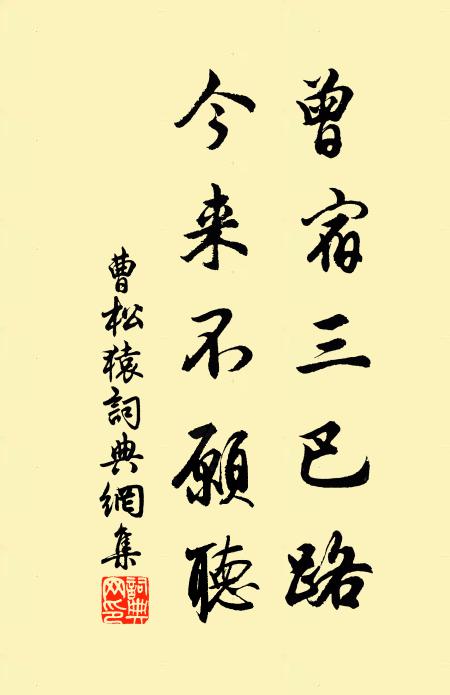 曾宿三巴路
今来不願聴
曹松猿詞典網集
詞典網印